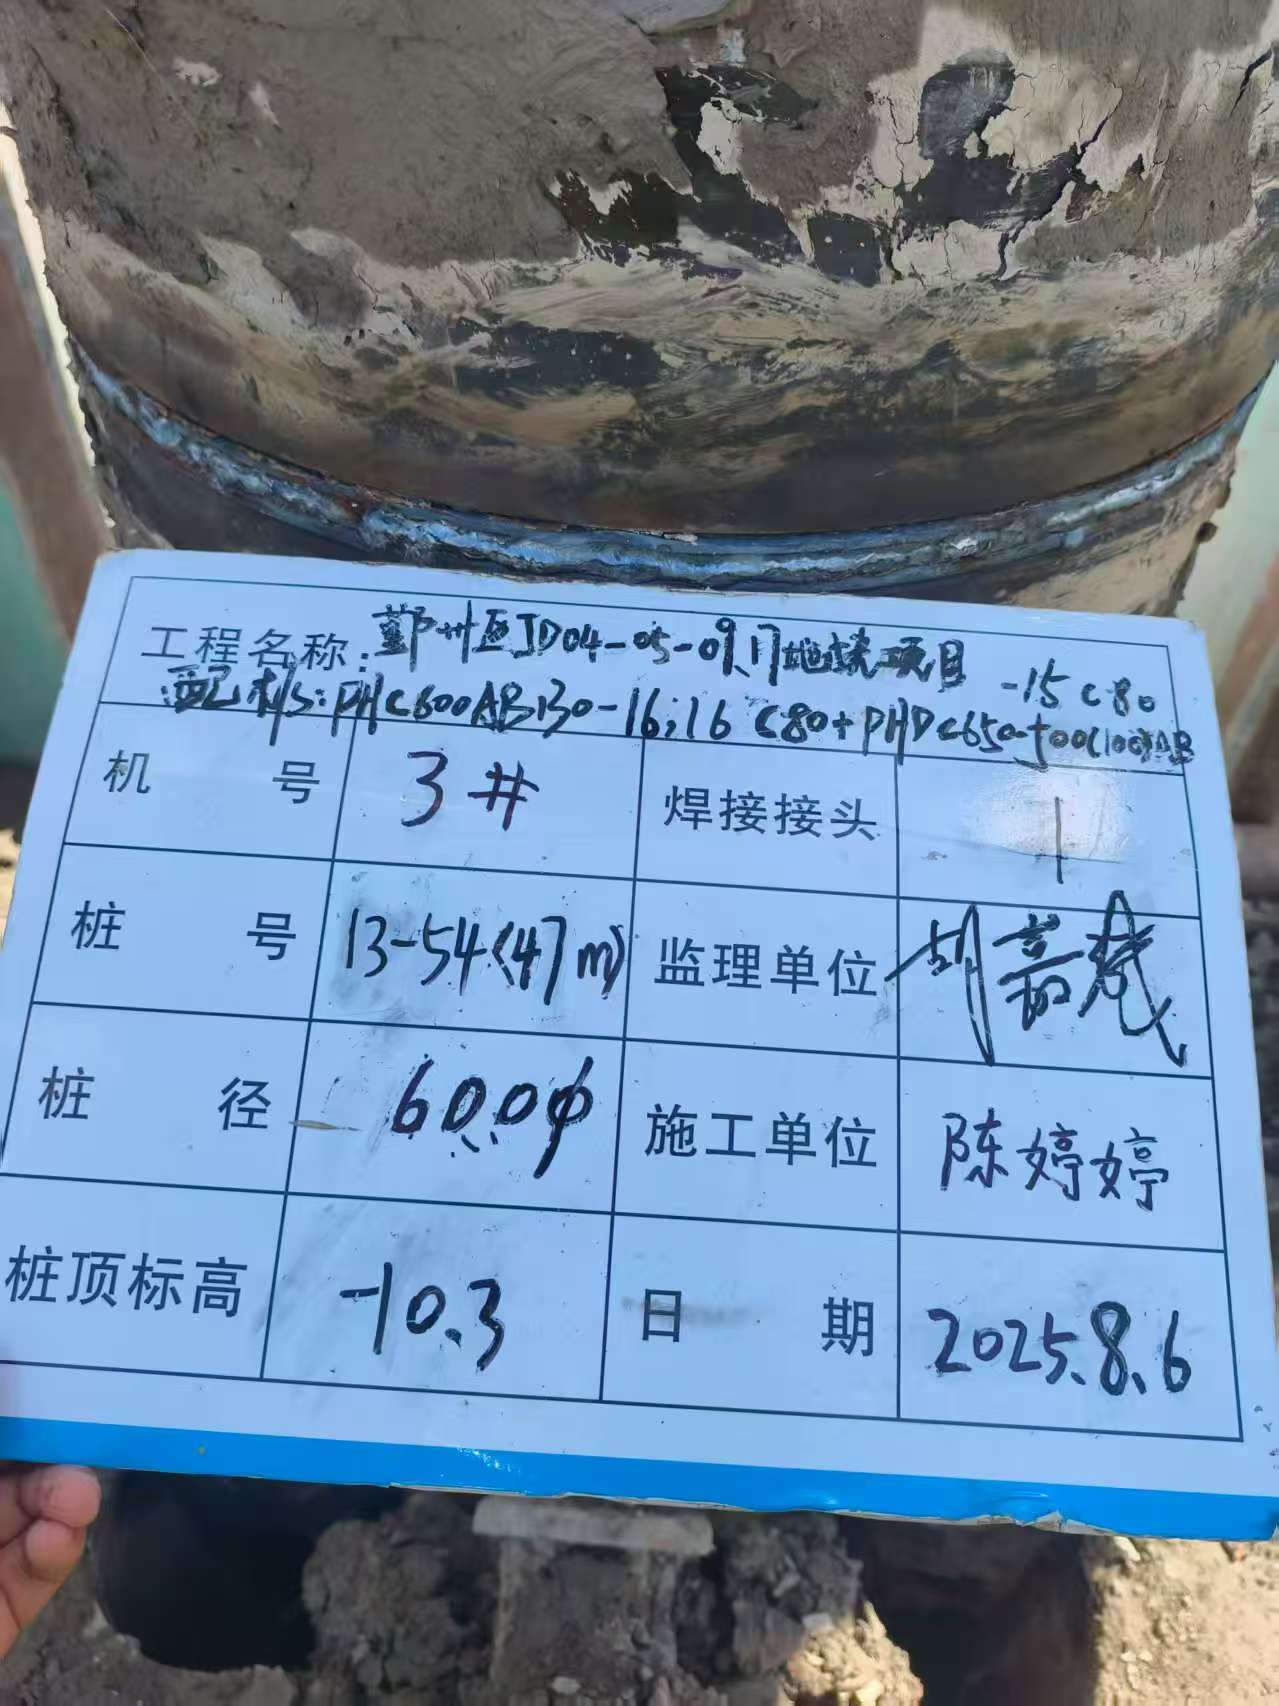 工程名称:鄞州区JD04-05-09,17地块项目
配桩:PHC600AB130-16;16 C80+PHDC650-500(100)AB -15 C80
机 号 3# 焊接接头 1
桩 号 13-54(47m) 监理单位
桩 径 600Φ 施工单位 陈婷婷
桩顶标高 -10.3 日 期 2025.8.6